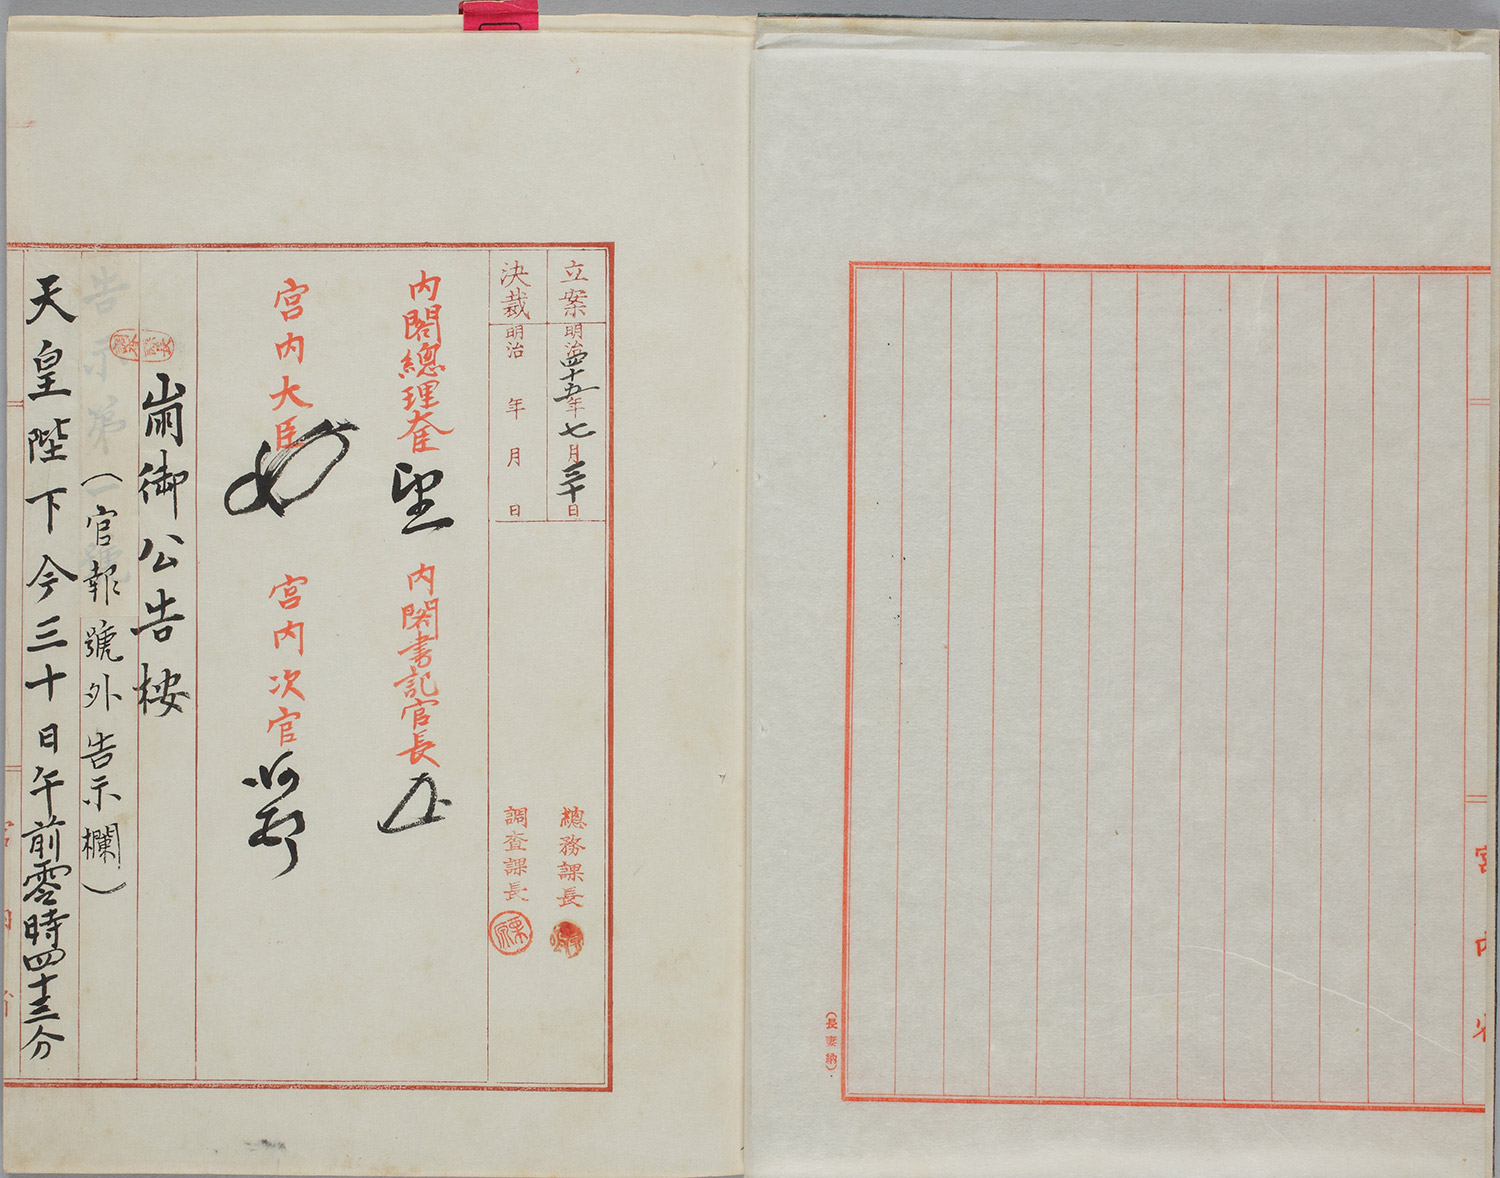 宮內省
(長妻納)
立案 明治四十五年七月三十日
決裁 明治 年 月 日
總務課長
調査課長
內閣總理大臣
內閣書記官長
宮內大臣
宮內次官
崩御公告按
(官報號外告示欄)
告示第一號
天皇陛下今三十日午前零時四十三分
宮內省